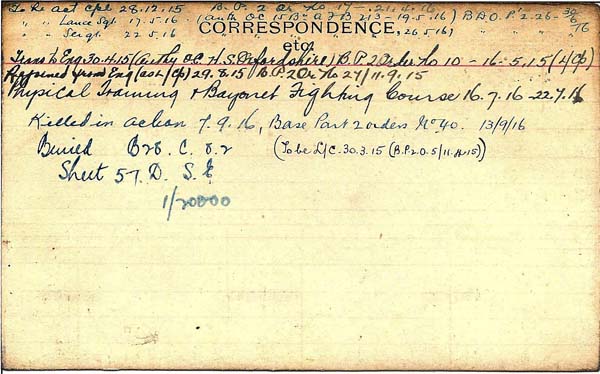 To be act Cpl 28.12.15 B.P. 2 Or. No 17 - 21.4.16
" " Lance Sgt 17.5.16 (auth OC 15 Bn A F B 213 - 19.5.16) B.P.O.P. 2-26- 30/6/16
" " Sergt 22.5.16 ( " " , 26.5.16) " " "
CORRESPONDENCE,
etc.
Trans to Eng 30.4.15 (Authy O.C. H.S. Oxfordshire) B.P. 2 Order No 10 - 16-5.15 (L/Cp)
Rejoined from Eng (as L/Cp) 29.8.15 B.P. 2 Or. No 27/11.9.15
Physical Training & Bayonet Fighting Course 16.7.16 - 22.7.16
Killed in action 7.9.16, Base Part 2 orders No 40. 13/9/16
Buried B28. C. 8.2 (To be L/C. 30.3.15 (B.P. 2.0. 5/11.4.15))
Sheet 57. D. S.E
1/20000